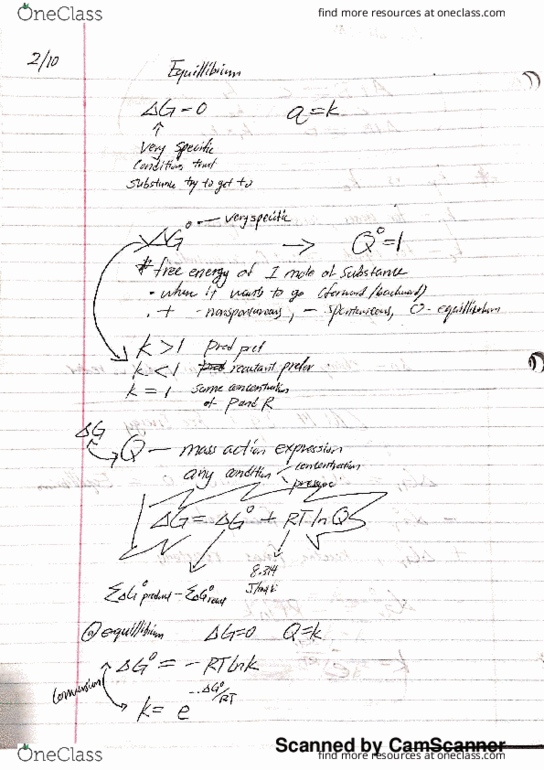 OneClass
find more resources at oneclass.com
2/10
Equillibrium
ΔG=0 Q=k
↑
Very specific
conditions that
substance try to get to
ΔG° — very specific → Q°=1
* free energy of 1 mole of substance
• where it wants to go (forward/backward)
• + - nonspontaneous, - spontaneous, 0 - equillibrium
k>1 prod pref
k<1 reactant prefer
k=1 same concentration
of P and R
ΔG
Q — mass action expression
any condition concentration
pressure
ΔG = ΔG° + RT ln Q
8.314
J/mol k
ΣΔG° product - ΣΔG° react
@ equillibrium ΔG=0 Q=k
ΔG° = - RT ln k
Conversion
k = e^-ΔG°/RT
Scanned by CamScanner
OneClass
find more resources at oneclass.com